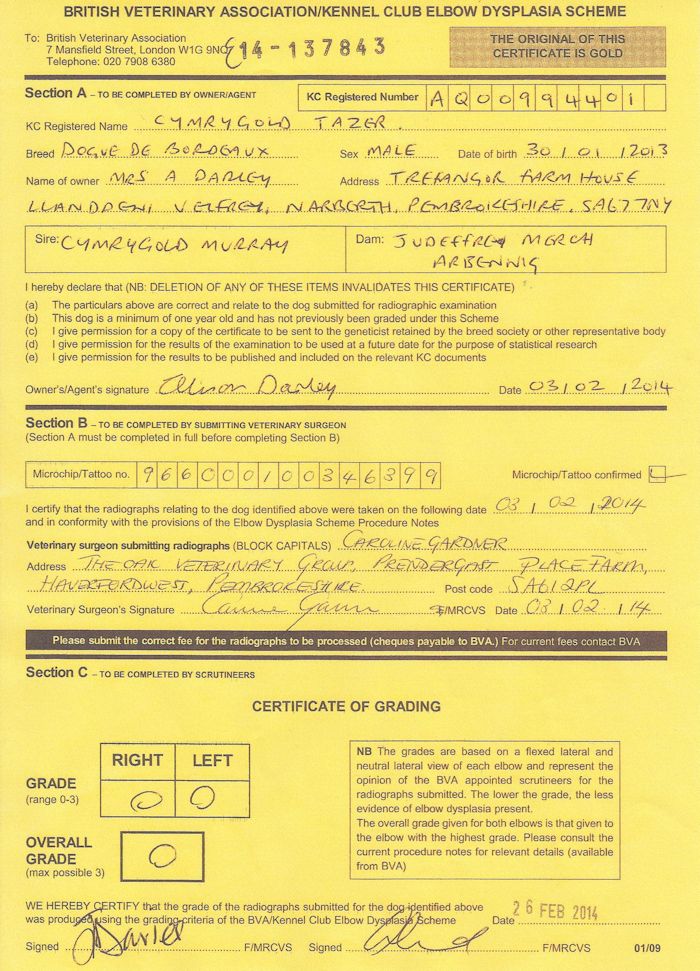 BRITISH VETERINARY ASSOCIATION/KENNEL CLUB ELBOW DYSPLASIA SCHEME
To: British Veterinary Association
7 Mansfield Street, London W1G 9NQ
Telephone: 020 7908 6380
E14-137843
THE ORIGINAL OF THIS
CERTIFICATE IS GOLD
Section A – TO BE COMPLETED BY OWNER/AGENT
KC Registered Number AQ00994401
KC Registered Name CYMRYGOLD TAZER.
Breed DOGUE DE BORDEAUX Sex MALE Date of birth 30/01/2013
Name of owner MRS A DARLEY Address TREFANGOR FARM HOUSE
LLANDDEWI VELFREY, NARBERTH, PEMBROKESHIRE, SA67 7NY
Sire: CYMRYGOLD MURRAY
Dam: JUDEFFREY MERCH
ARBENNIG
I hereby declare that (NB: DELETION OF ANY OF THESE ITEMS INVALIDATES THIS CERTIFICATE)
(a) The particulars above are correct and relate to the dog submitted for radiographic examination
(b) This dog is a minimum of one year old and has not previously been graded under this Scheme
(c) I give permission for a copy of the certificate to be sent to the geneticist retained by the breed society or other representative body
(d) I give permission for the results of the examination to be used at a future date for the purpose of statistical research
(e) I give permission for the results to be published and included on the relevant KC documents
Owner's/Agent's signature Alison Darley Date 03/02/2014
Section B – TO BE COMPLETED BY SUBMITTING VETERINARY SURGEON
(Section A must be completed in full before completing Section B)
Microchip/Tattoo no. 966000100346399 Microchip/Tattoo confirmed
I certify that the radiographs relating to the dog identified above were taken on the following date 03/02/2014
and in conformity with the provisions of the Elbow Dysplasia Scheme Procedure Notes
Veterinary surgeon submitting radiographs (BLOCK CAPITALS) CAROLINE GARDNER
Address THE OAK VETERINARY GROUP, PRENDERGAST PLACE FARM,
HAVERFORDWEST, PEMBROKESHIRE Post code SA61 2PL
Veterinary Surgeon's Signature F/MRCVS Date 03/02/14
Please submit the correct fee for the radiographs to be processed (cheques payable to BVA.) For current fees contact BVA
Section C – TO BE COMPLETED BY SCRUTINEERS
CERTIFICATE OF GRADING
RIGHT LEFT
GRADE
(range 0-3)
0 0
OVERALL
GRADE
(max possible 3)
0
NB The grades are based on a flexed lateral and
neutral lateral view of each elbow and represent the
opinion of the BVA appointed scrutineers for the
radiographs submitted. The lower the grade, the less
evidence of elbow dysplasia present.
The overall grade given for both elbows is that given to
the elbow with the highest grade. Please consult the
current procedure notes for relevant details (available
from BVA)
WE HEREBY CERTIFY that the grade of the radiographs submitted for the dog identified above
was produced using the grading criteria of the BVA/Kennel Club Elbow Dysplasia Scheme Date 26 FEB 2014
Signed F/MRCVS Signed F/MRCVS 01/09